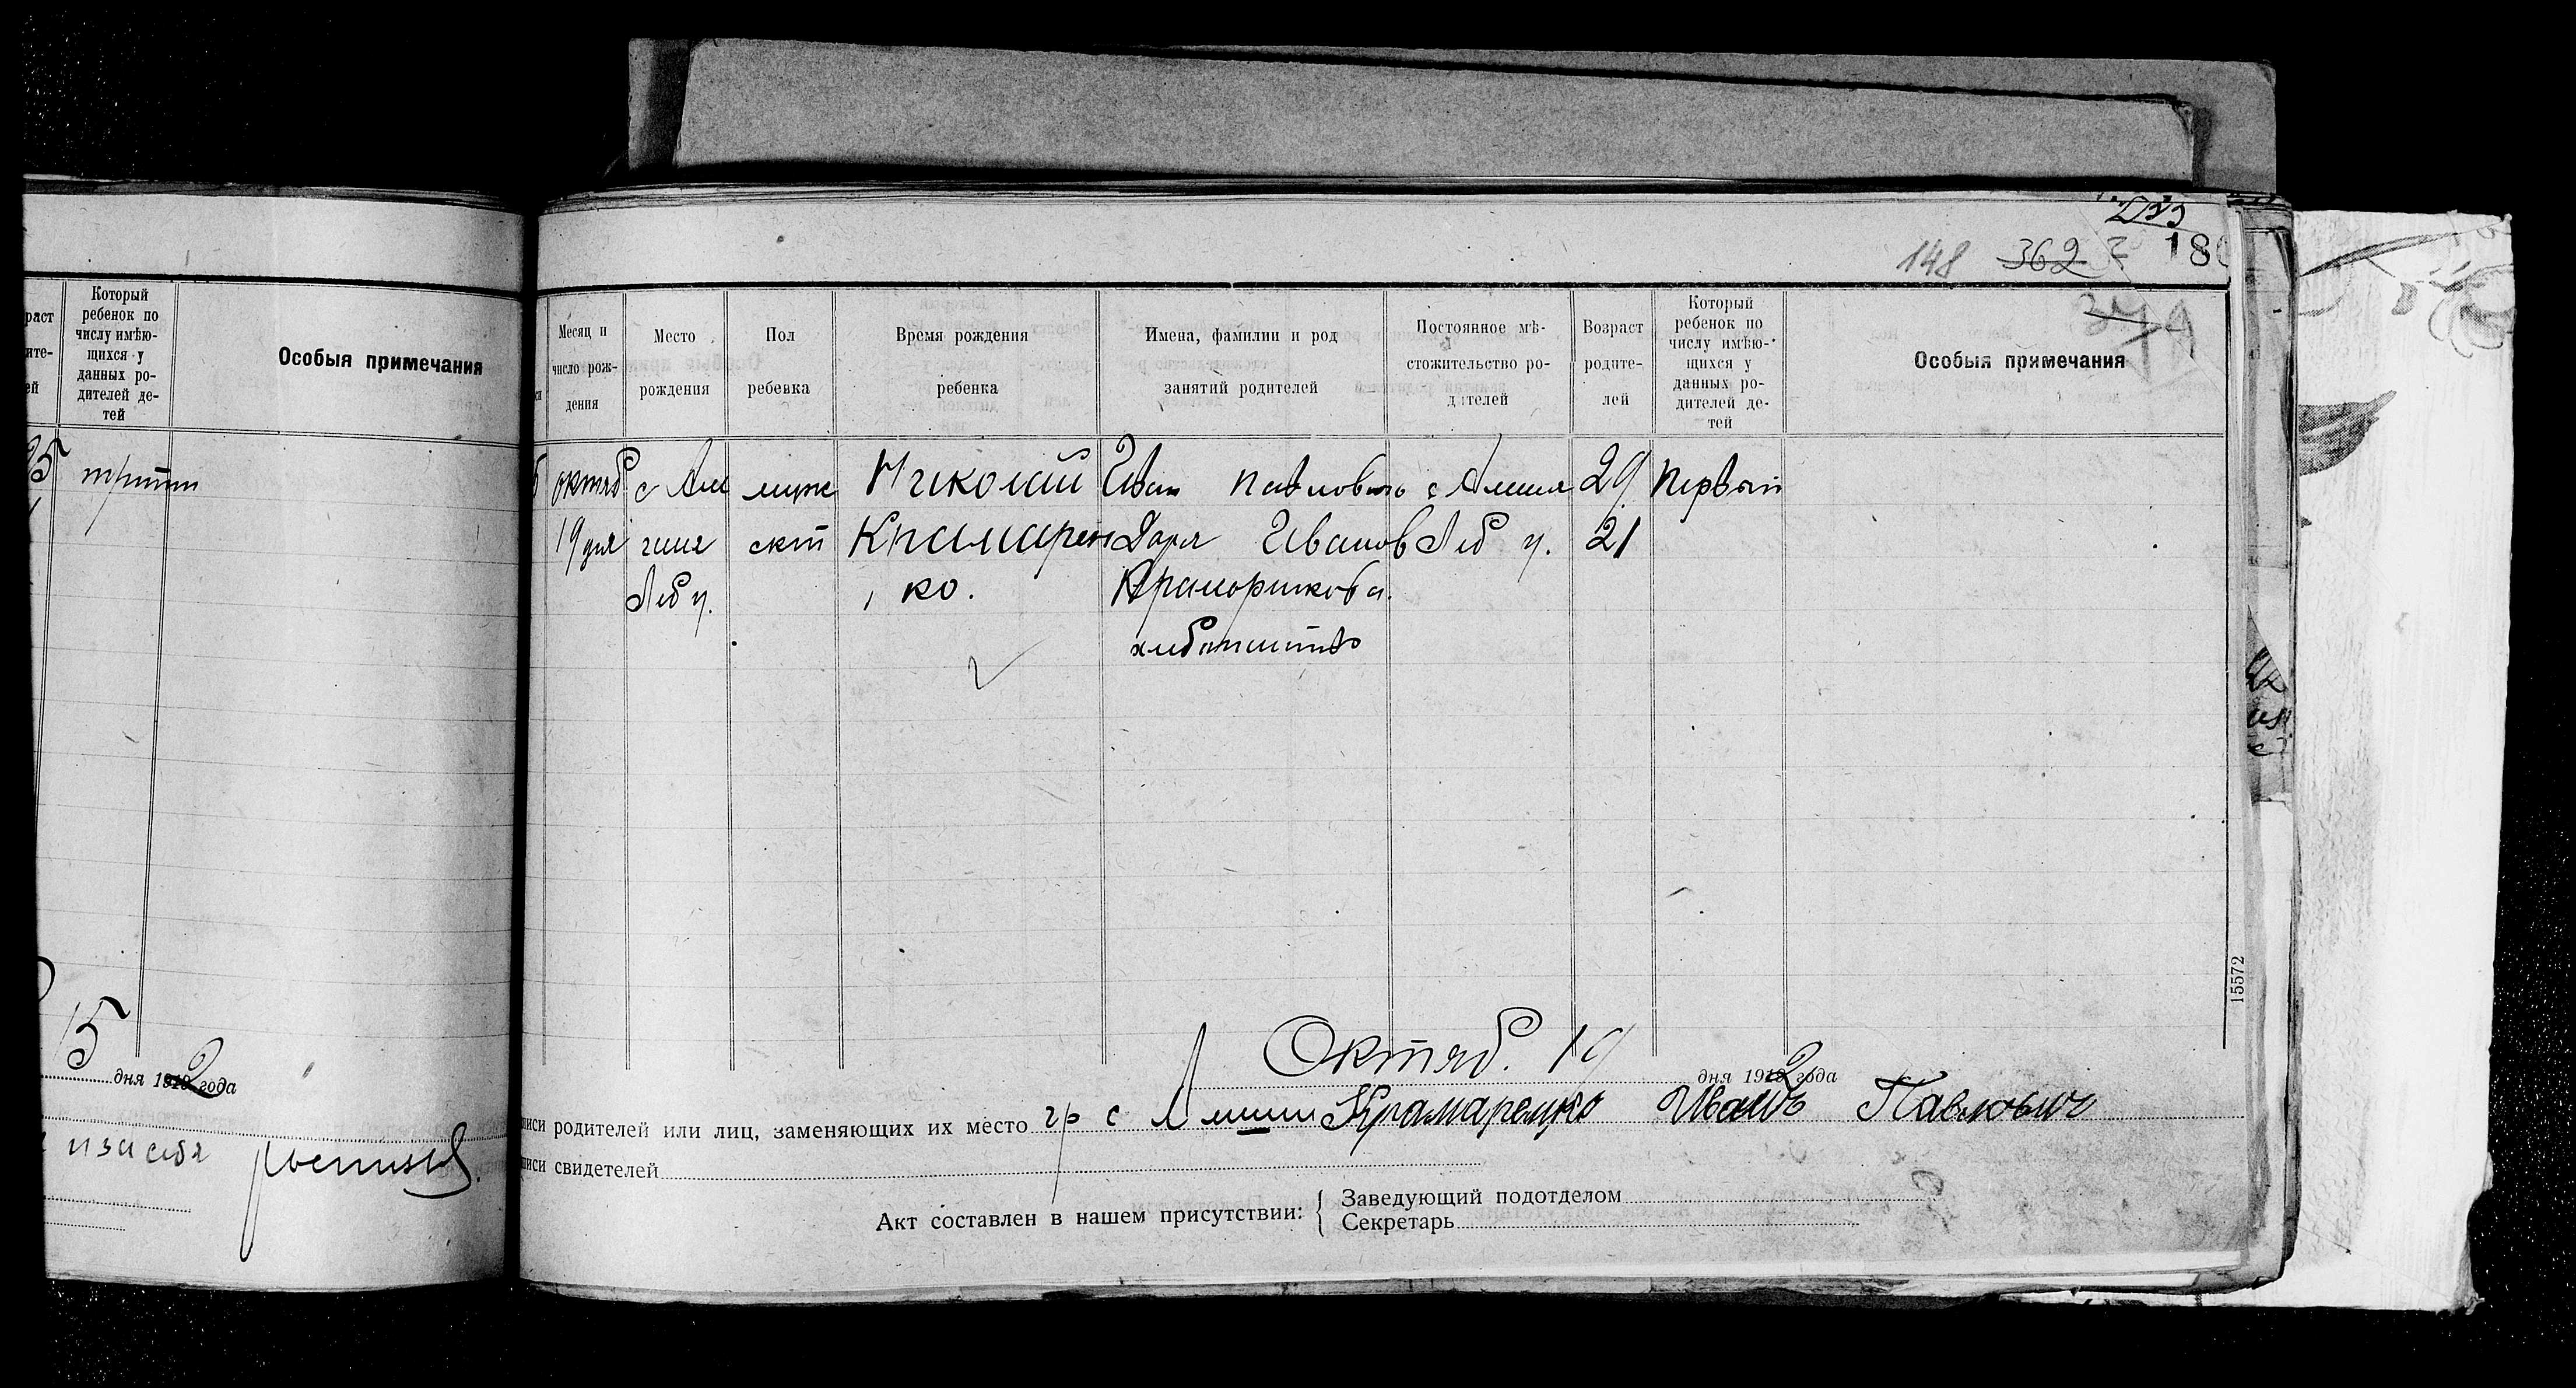 148 362 180
Который
ребенок по
числу имѣю-
щихся у
данных ро-
дителей де-
тей
Особыя примечания
25
15
дня 1912 года
Месяц и
число рож-
дения
Место
рождения
Пол
ребенка
Время рождения
ребенка
Имена, фамилии и род
занятий родителей
Постоянное мѣ-
стожительство ро-
дителей
Возраст
родите-
лей
Который
ребенок по
числу имѣю-
щихся у
данных ро-
дителей де-
тей
Особыя примечания
октяб с муже Николай Иван Павловичъ с 29 первый
19 дня ский Крамарен Дарья Иванов Леб у. 21
Леб у. ко.
15572
Октяб. 19
дня 1912 года
писи родителей или лиц, заменяющих их место гр с Крамаренко Иванъ Павлович
писи свидетелей
Акт составлен в нашем присутствии:
Заведующий подотделом
Секретарь